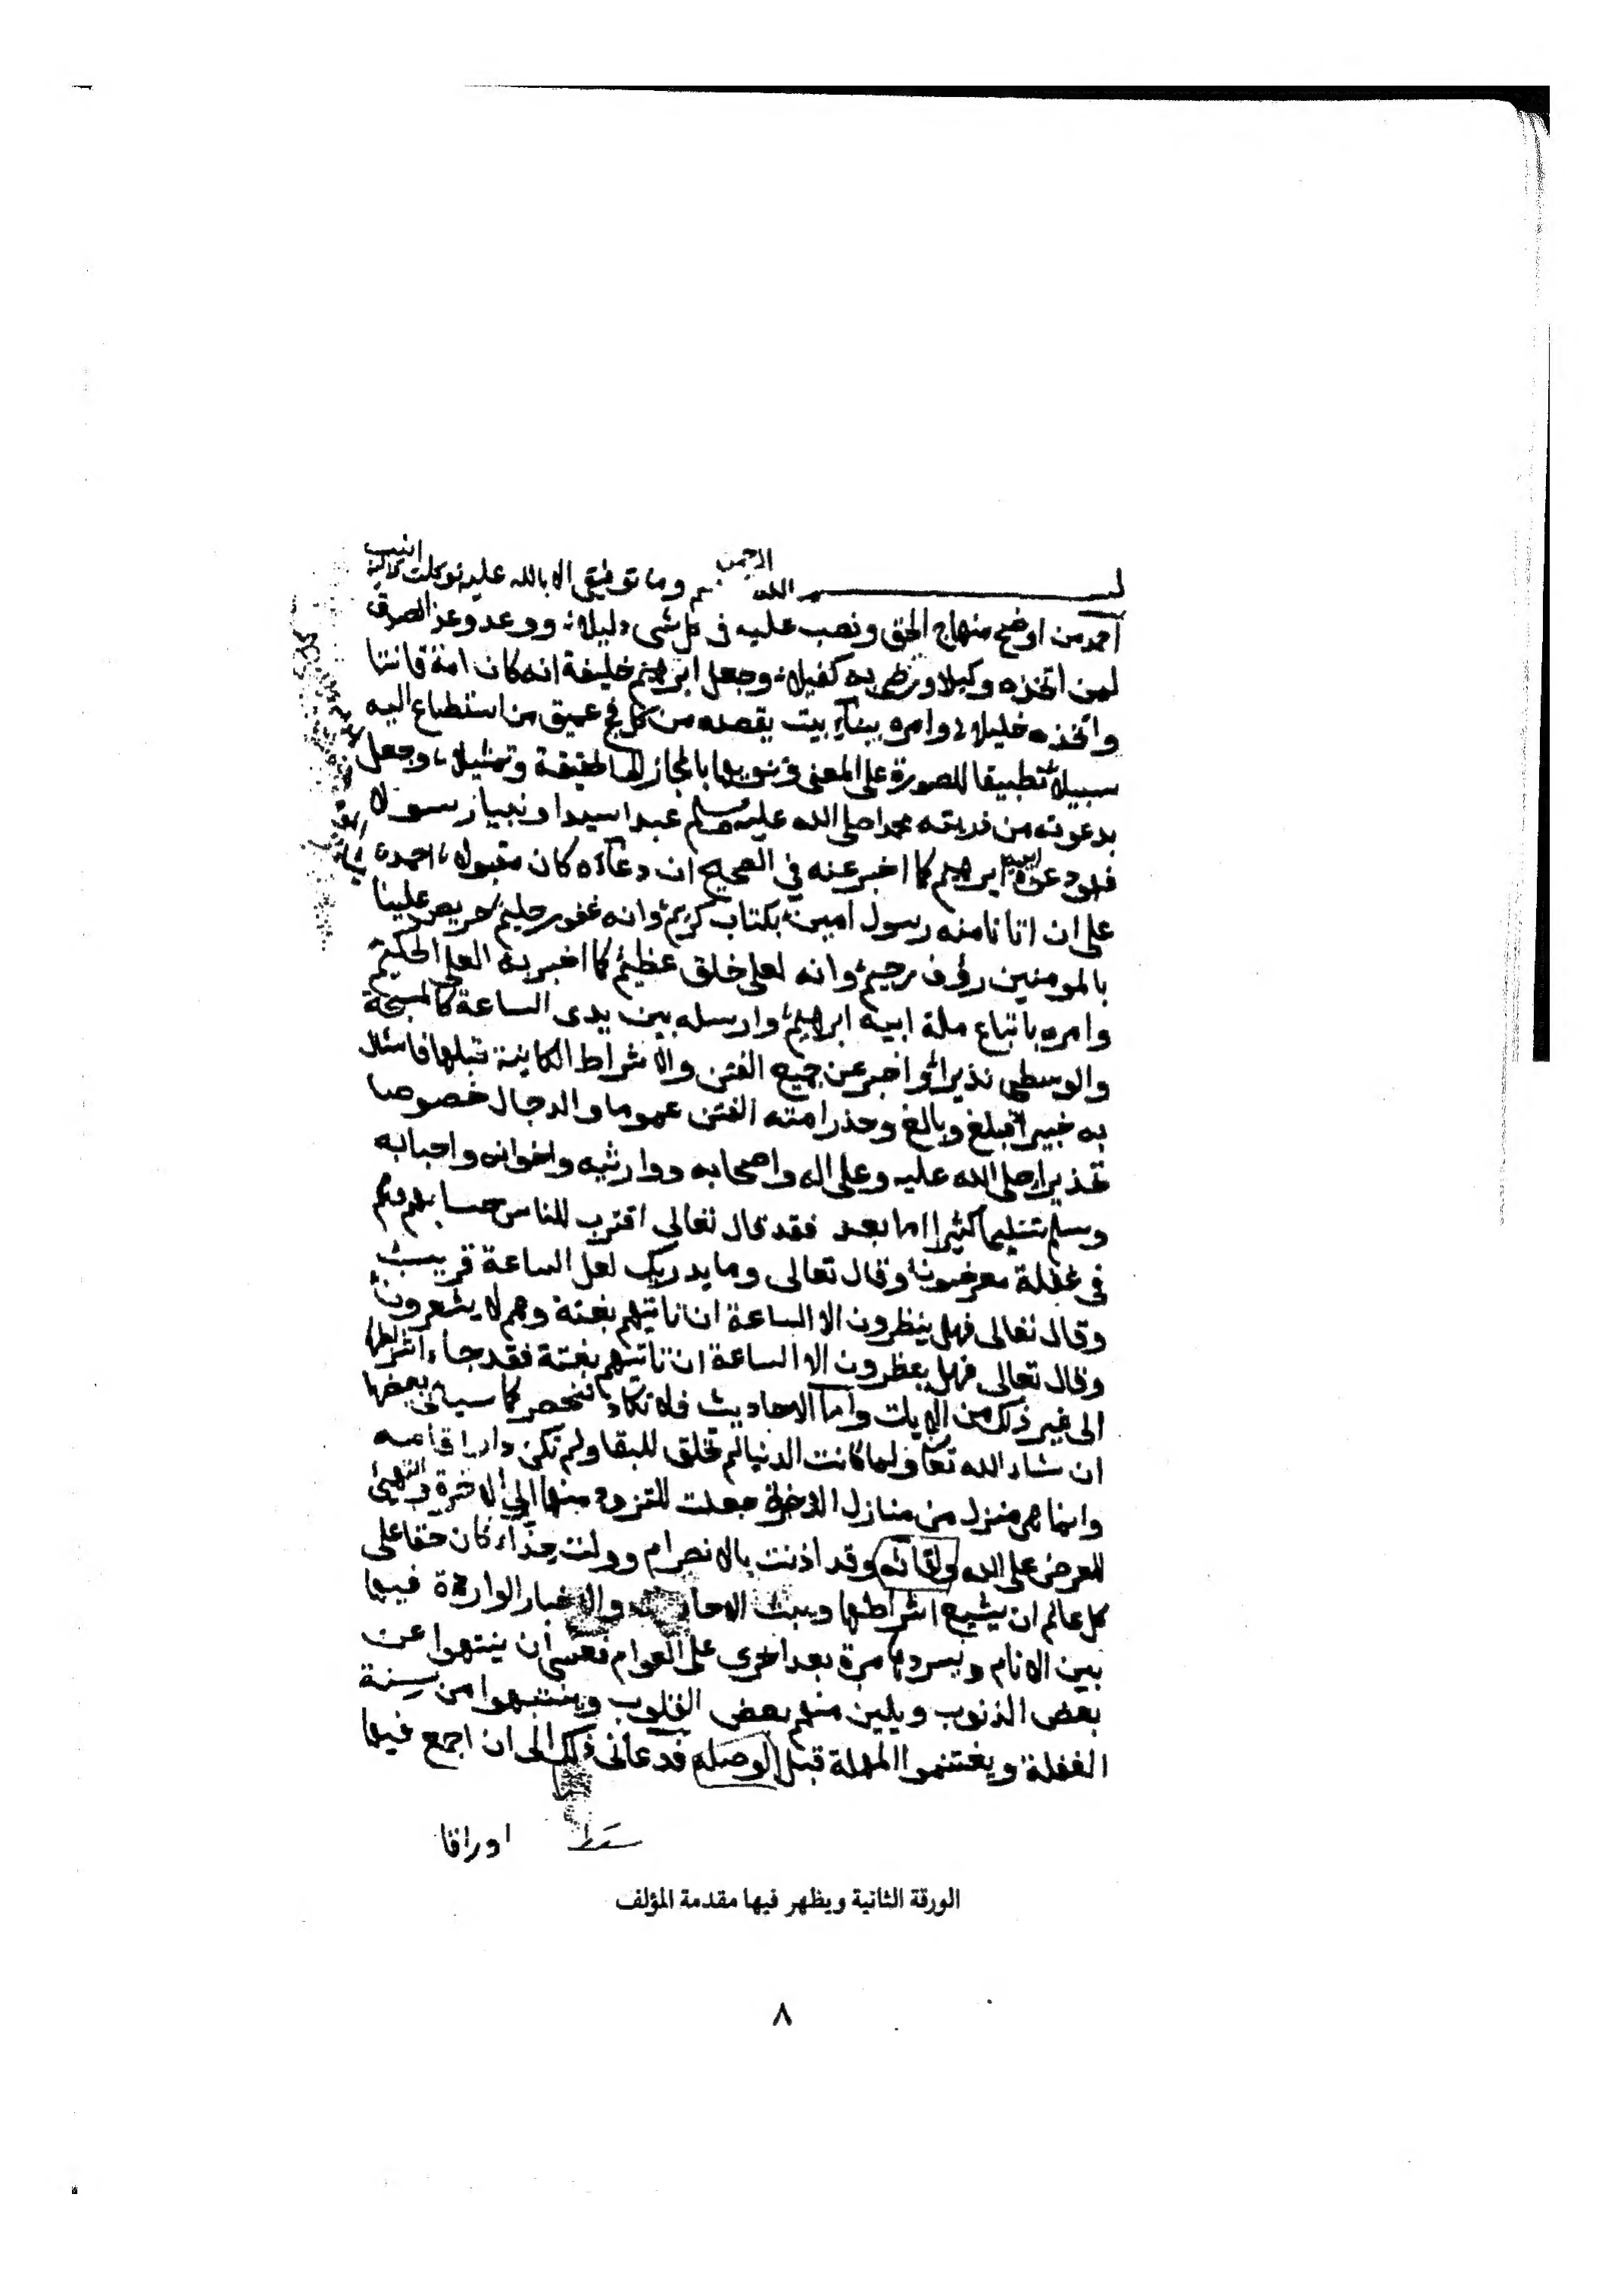 بسم الله الرحمن وما توفيقي الا بالله عليه توكلت انيب
احمد من اوضح منهاج الحق ونصب عليه في كل شى دليلا ووعد وعد الصدق
لمن اتخذه وكيلا به كفيلا وجعل ابرهيم خليفة انه كان امة قانتا
واتخذه خليلا وامره ببنآء بيت يقصده من كل فج عميق من استطاع اليه
سبيلا تطبيقا للصورة على المعنى بالمجاز الحقيقة وتمثيلا وجعل
بدعوته من ذريته محمدا صلى الله عليه وسلم عبدا سيدا ونبيا رسولا
فهو دعوة ابيه ابرهيم كما اخبر عنه في الصحيح ان دعآءه كان مقبولا احمده
على ان اتانا منه رسول امين بكتاب كريم وانه غفور حليم حريص علينا
بالمومنين رؤف رحيم وانه لعلى خلق عظيم كما اخبر به العلي الحكيم
وامره باتباع ملة ابيه ابرهيم وارسله بين يدى الساعة كالمسبحة
والوسطى نذيرا واخبر عن جميع الفتن والاشراط الكاينة قبلها فاسئال
به خبيرا فبلغ وبالغ وحذر امته الفتن عموما والدجال خصوصا
تحذيرا صلى الله عليه وعلى اله واصحابه ووارثيه واخوانه واحبابه
وسلم تسليما كثيرا اما بعد فقد قال تعالى اقترب للناس حسابهم وهم
في غفلة معرضون وقال تعالى وما يدريك لعل الساعة قريب
وقال تعالى فهل ينظرون الا الساعة ان تاتيهم بغتة وهم لا يشعرون
وقال تعالى فهل ينظرون الا الساعة ان تاتيهم بغتة فقد جاء اشراطها
الى غير ذلك من الايات واما الاحاديث فلا تكاد تنحصر كما سياتى بعضها
ان شاء الله تعا ولما كانت الدنيا لم تخلق للبقا ولم تكن دار اقامه
وانما هى منزل من منازل الاخرة جعلت للتزود منها الى الاخرة والتهيئ
للعرض على الله ولقائه وقد اذنت بالانصرام وولت حذاء كان حقا على
كل عالم ان يشيع اشراطها ويبث والاخبار الواردة فيها
بين الانام ويسردها مرة بعد اخرى على العوام فعسى ان ينتهوا عن
بعض الذنوب ويلين منهم بعض القلوب وينتبهوا من سنة
الغفلة ويغتنموا المهلة قبل الوصلة فدعانى ذلك الى ان اجمع فيها
اوراقا
الورقة الثانية ويظهر فيها مقدمة المؤلف
٨